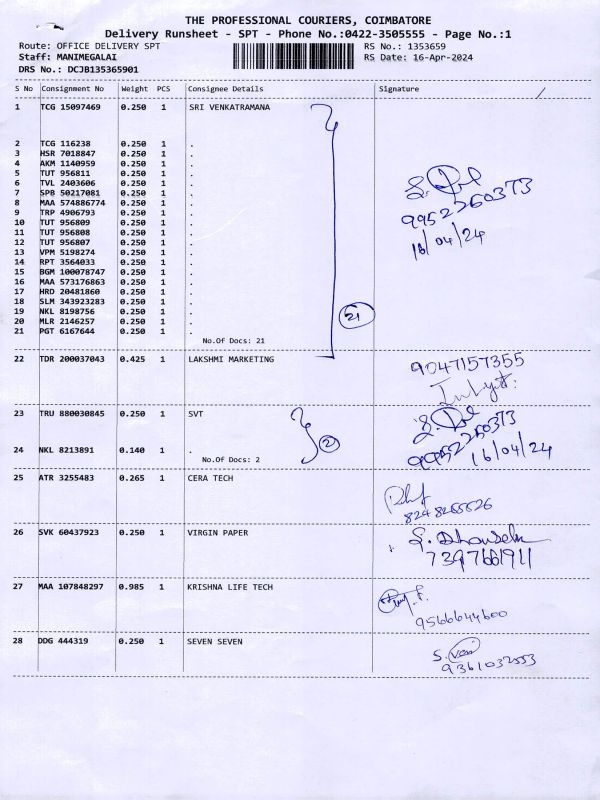 THE PROFESSIONAL COURIERS, COIMBATORE
Delivery Runsheet - SPT - Phone No.:0422-3505555 - Page No.:1
Route: OFFICE DELIVERY SPT RS No.: 1353659
Staff: MANIMEGALAI RS Date: 16-Apr-2024
DRS No.: DCJB135365901
S No Consignment No Weight PCS Consignee Details Signature
1 TCG 15097469 0.250 1 SRI VENKATRAMANA
2 TCG 116238 0.250 1 .
3 HSR 7018847 0.250 1 .
4 AKM 1140959 0.250 1 .
5 TUT 956811 0.250 1 .
6 TVL 2403606 0.250 1 .
7 SPB 50217081 0.250 1 .
8 MAA 574886774 0.250 1 .
9 TRP 4906793 0.250 1 .
10 TUT 956809 0.250 1 .
11 TUT 956808 0.250 1 .
12 TUT 956807 0.250 1 .
13 VPM 5198274 0.250 1 .
14 RPT 3564033 0.250 1 .
15 BGM 100078747 0.250 1 .
16 MAA 573176863 0.250 1 .
17 HRD 20481860 0.250 1 .
18 SLM 343923283 0.250 1 .
19 NKL 8198756 0.250 1 .
20 MLR 2146257 0.250 1 .
21 PGT 6167644 0.250 1 .
No.Of Docs: 21
21
9952260373
16/04/24
22 TDR 200037043 0.425 1 LAKSHMI MARKETING 9047157355
23 TRU 880030845 0.250 1 SVT
24 NKL 8213891 0.140 1 .
No.Of Docs: 2
2
9952260373
16/04/24
25 ATR 3255483 0.265 1 CERA TECH
26 SVK 60437923 0.250 1 VIRGIN PAPER
7397661911
27 MAA 107848297 0.985 1 KRISHNA LIFE TECH
9566644600
28 DDG 444319 0.250 1 SEVEN SEVEN